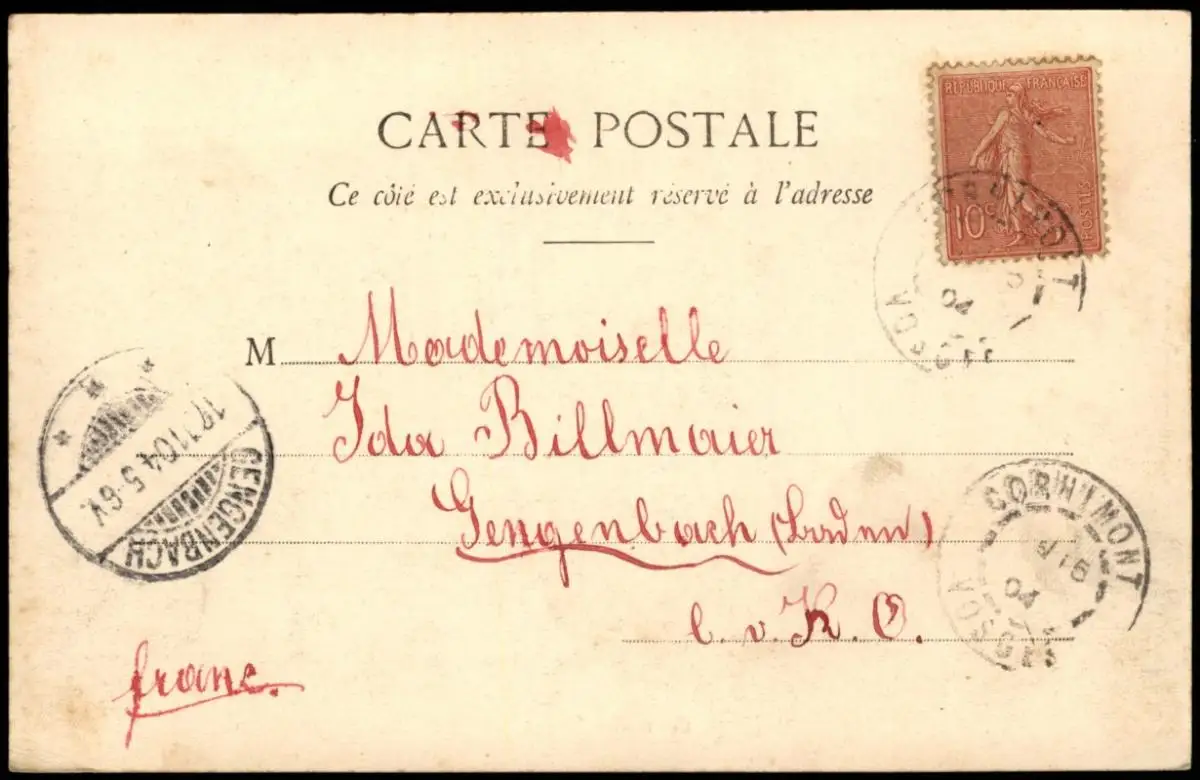 CARTE POSTALE
Ce côté est exclusivement réservé à l'adresse
REPUBLIQUE FRANÇAISE
10c POSTES
M Mademoiselle
Ida Billmaier
Gengenbach (Baden)
b. v. K. O.
franc.
GENGENBACH
CORNIMONT
VOSGES
04
CORNIMONT
VOSGES
04